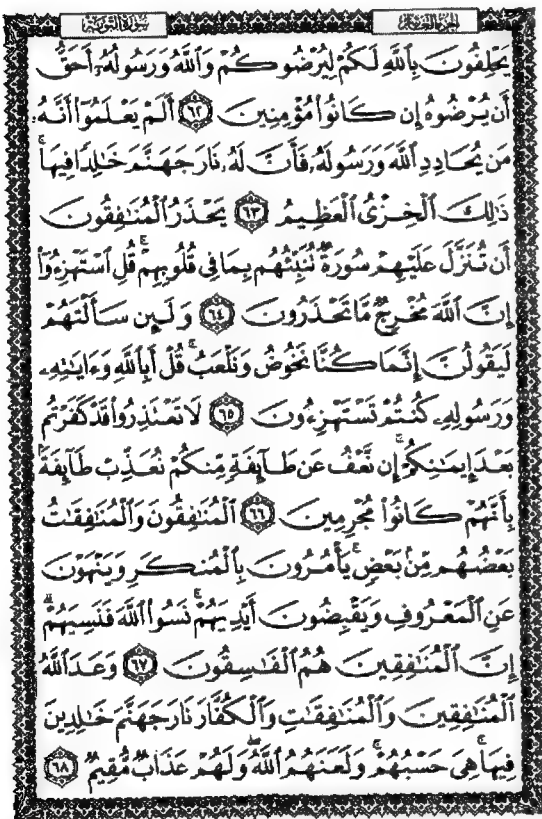 سورة التوبة الجزء العاشر
يَحْلِفُونَ بِٱللَّهِ لَكُمْ لِيُرْضُوكُمْ وَٱللَّهُ وَرَسُولُهُۥٓ أَحَقُّ
أَن يُرْضُوهُ إِن كَانُوا۟ مُؤْمِنِينَ ٦٢ أَلَمْ يَعْلَمُوٓا۟ أَنَّهُۥ
مَن يُحَادِدِ ٱللَّهَ وَرَسُولَهُۥ فَأَنَّ لَهُۥ نَارَ جَهَنَّمَ خَٰلِدًا فِيهَا ۚ
ذَٰلِكَ ٱلْخِزْىُ ٱلْعَظِيمُ ٦٣ يَحْذَرُ ٱلْمُنَٰفِقُونَ
أَن تُنَزَّلَ عَلَيْهِمْ سُورَةٌ تُنَبِّئُهُم بِمَا فِى قُلُوبِهِمْ ۚ قُلِ ٱسْتَهْزِءُوٓا۟
إِنَّ ٱللَّهَ مُخْرِجٌ مَّا تَحْذَرُونَ ٦٤ وَلَئِن سَأَلْتَهُمْ
لَيَقُولُنَّ إِنَّمَا كُنَّا نَخُوضُ وَنَلْعَبُ ۚ قُلْ أَبِٱللَّهِ وَءَايَٰتِهِۦ
وَرَسُولِهِۦ كُنتُمْ تَسْتَهْزِءُونَ ٦٥ لَا تَعْتَذِرُوا۟ قَدْ كَفَرْتُم
بَعْدَ إِيمَٰنِكُمْ ۚ إِن نَّعْفُ عَن طَآئِفَةٍ مِّنكُمْ نُعَذِّبْ طَآئِفَةًۢ
بِأَنَّهُمْ كَانُوا۟ مُجْرِمِينَ ٦٦ ٱلْمُنَٰفِقُونَ وَٱلْمُنَٰفِقَٰتُ
بَعْضُهُم مِّنۢ بَعْضٍ ۚ يَأْمُرُونَ بِٱلْمُنكَرِ وَيَنْهَوْنَ
عَنِ ٱلْمَعْرُوفِ وَيَقْبِضُونَ أَيْدِيَهُمْ ۚ نَسُوا۟ ٱللَّهَ فَنَسِيَهُمْ ۗ
إِنَّ ٱلْمُنَٰفِقِينَ هُمُ ٱلْفَٰسِقُونَ ٦٧ وَعَدَ ٱللَّهُ
ٱلْمُنَٰفِقِينَ وَٱلْمُنَٰفِقَٰتِ وَٱلْكُفَّارَ نَارَ جَهَنَّمَ خَٰلِدِينَ
فِيهَا ۚ هِىَ حَسْبُهُمْ ۚ وَلَعَنَهُمُ ٱللَّهُ ۖ وَلَهُمْ عَذَابٌ مُّقِيمٌ ٦٨